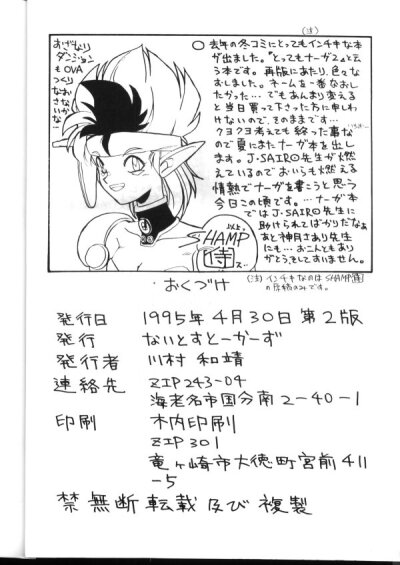 (注)
○去年の冬コミにとってもインチキな本
が出ました。"とってもナーガ2"と云
う本です。再版にあたり、色々な
おしました。ネームを一番なおし
たかった…でもあんまり変える
と当日買って下さった方に申しわ
けないので、そのままです…
クヨクヨ考えても終った事な
ので夏にまたナーガ本を出し
ます。J・SAIRO先生が燃
えているのでおいらも燃える
情熱でナーガを書こうと思う
今日この頃です。…ナーガ本
ではJ・SAIRO先生に
助けられてばかりだなぁ
あと神月さあり先生
にも…お二人ともあり
がとう、そしてすいません。
おざなり
ダンジョン
もOVA
つくり
なおさ
ないかな
SHAMP
(注)インチキなのはSHAMP
の原稿のみです。
おくづけ
発行日 1995年4月30日第2版
発行 ないとすとーかーず
発行者 川村 和靖
連絡先 ZIP243-04
海老名市国分南2-40-1
印刷 木内印刷
ZIP301
竜ヶ崎市大徳町宮前411
-5
禁無断転載及び複製